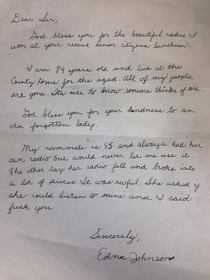 Dear Sir,
God bless you for the beautiful radio I
won at your recent senior citizens luncheon.
I am 84 years old and live at the
County Home for the aged. All of my people
are gone. It's nice to know someone thinks of me.
God bless you for your kindness to an
old forgotten lady.
My roommate is 95 and always had her
own radio but would never let me use it.
The other day her radio fell and broke into
a lot of pieces. It was awful. She asked if
she could listen to mine and I said
fuck you.
Sincerely,
Edna Johnson